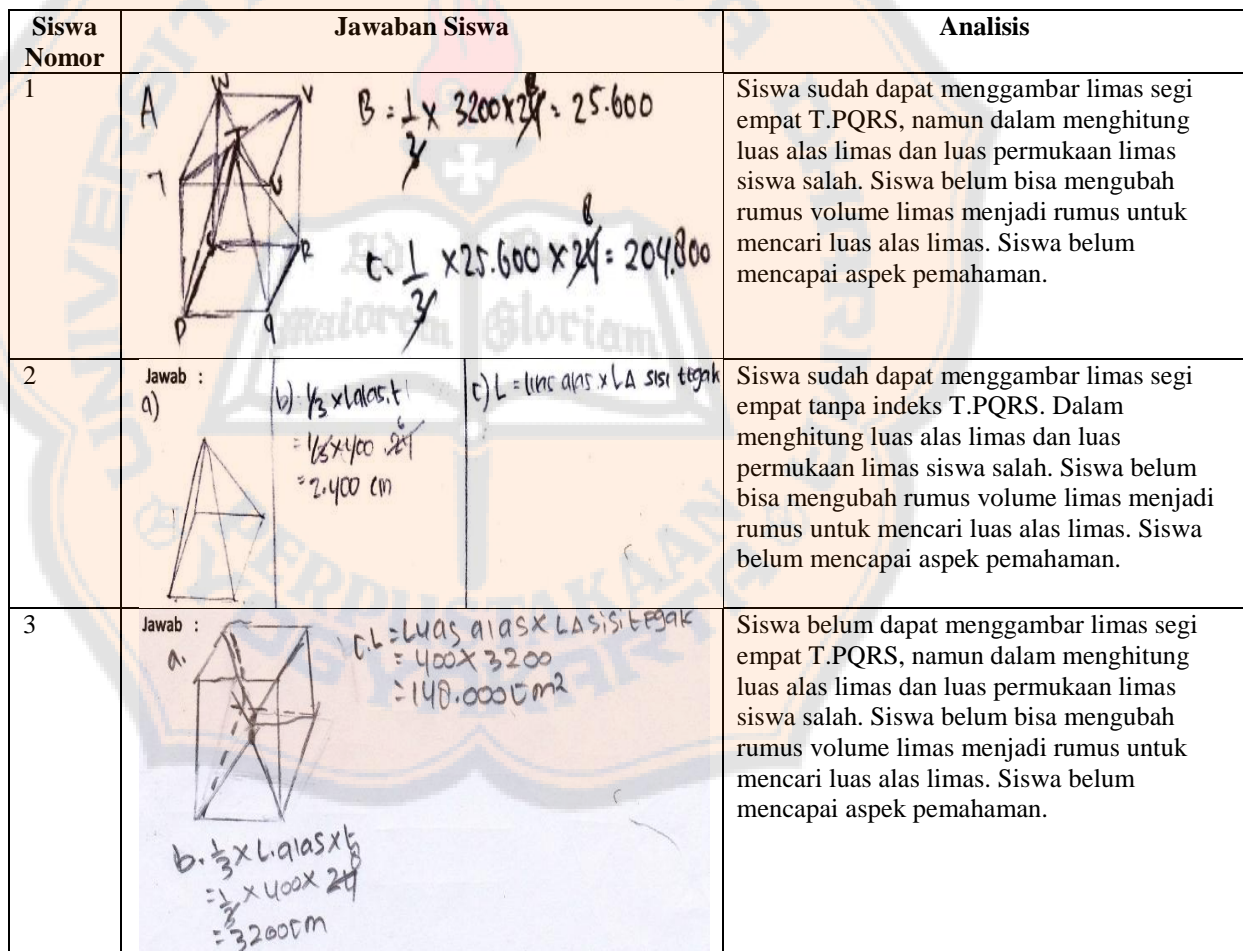 Siswa Nomor
Jawaban Siswa
Analisis
1
A
W
V
T
T
U
S
R
P
Q
B = 1/3 x 3200 x 24 8 = 25.600
C. 1/3 x 25.600 x 24 8 = 204.800
Siswa sudah dapat menggambar limas segi
empat T.PQRS, namun dalam menghitung
luas alas limas dan luas permukaan limas
siswa salah. Siswa belum bisa mengubah
rumus volume limas menjadi rumus untuk
mencari luas alas limas. Siswa belum
mencapai aspek pemahaman.
2
Jawab :
a)
b) 1/3 x Lalas.t
= 1/3 x 400 . 24 6
= 2.400 cm
c) L = luas alas x L∆ sisi tegak
Siswa sudah dapat menggambar limas segi
empat tanpa indeks T.PQRS. Dalam
menghitung luas alas limas dan luas
permukaan limas siswa salah. Siswa belum
bisa mengubah rumus volume limas menjadi
rumus untuk mencari luas alas limas. Siswa
belum mencapai aspek pemahaman.
3
Jawab :
a.
c. L = Luas alas x L∆ sisi tegak
= 400 x 3200
= 140.000 cm²
b. 1/3 x L.alas x t
= 1/3 x 400 x 24 8
= 3200 cm
Siswa belum dapat menggambar limas segi
empat T.PQRS, namun dalam menghitung
luas alas limas dan luas permukaan limas
siswa salah. Siswa belum bisa mengubah
rumus volume limas menjadi rumus untuk
mencari luas alas limas. Siswa belum
mencapai aspek pemahaman.
Ad
Maiorem Gloriam
PERPUSTAKAAN
YOGYAKARTA